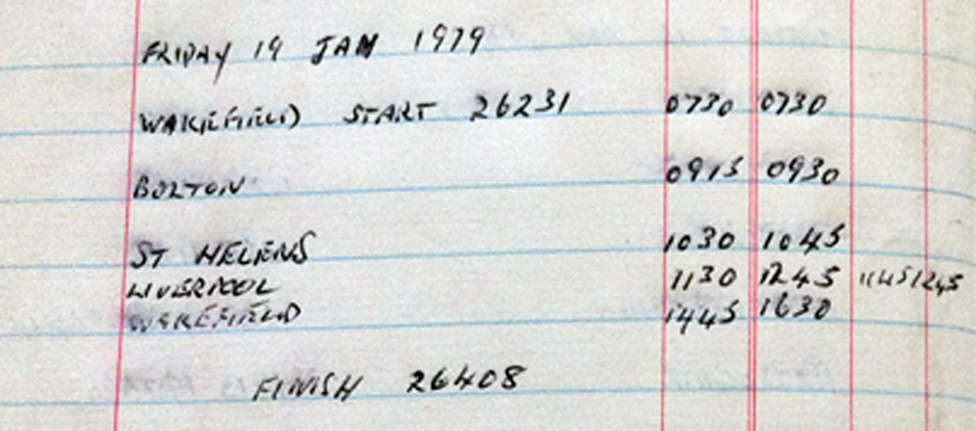 FRIDAY 19 JAN 1979
WAKEFIELD START 26231 0730 0730
BOLTON 0915 0930
ST HELENS 1030 1045
LIVERPOOL 1130 1245 1145 1245
WAKEFIELD 1445 1630
FINISH 26408